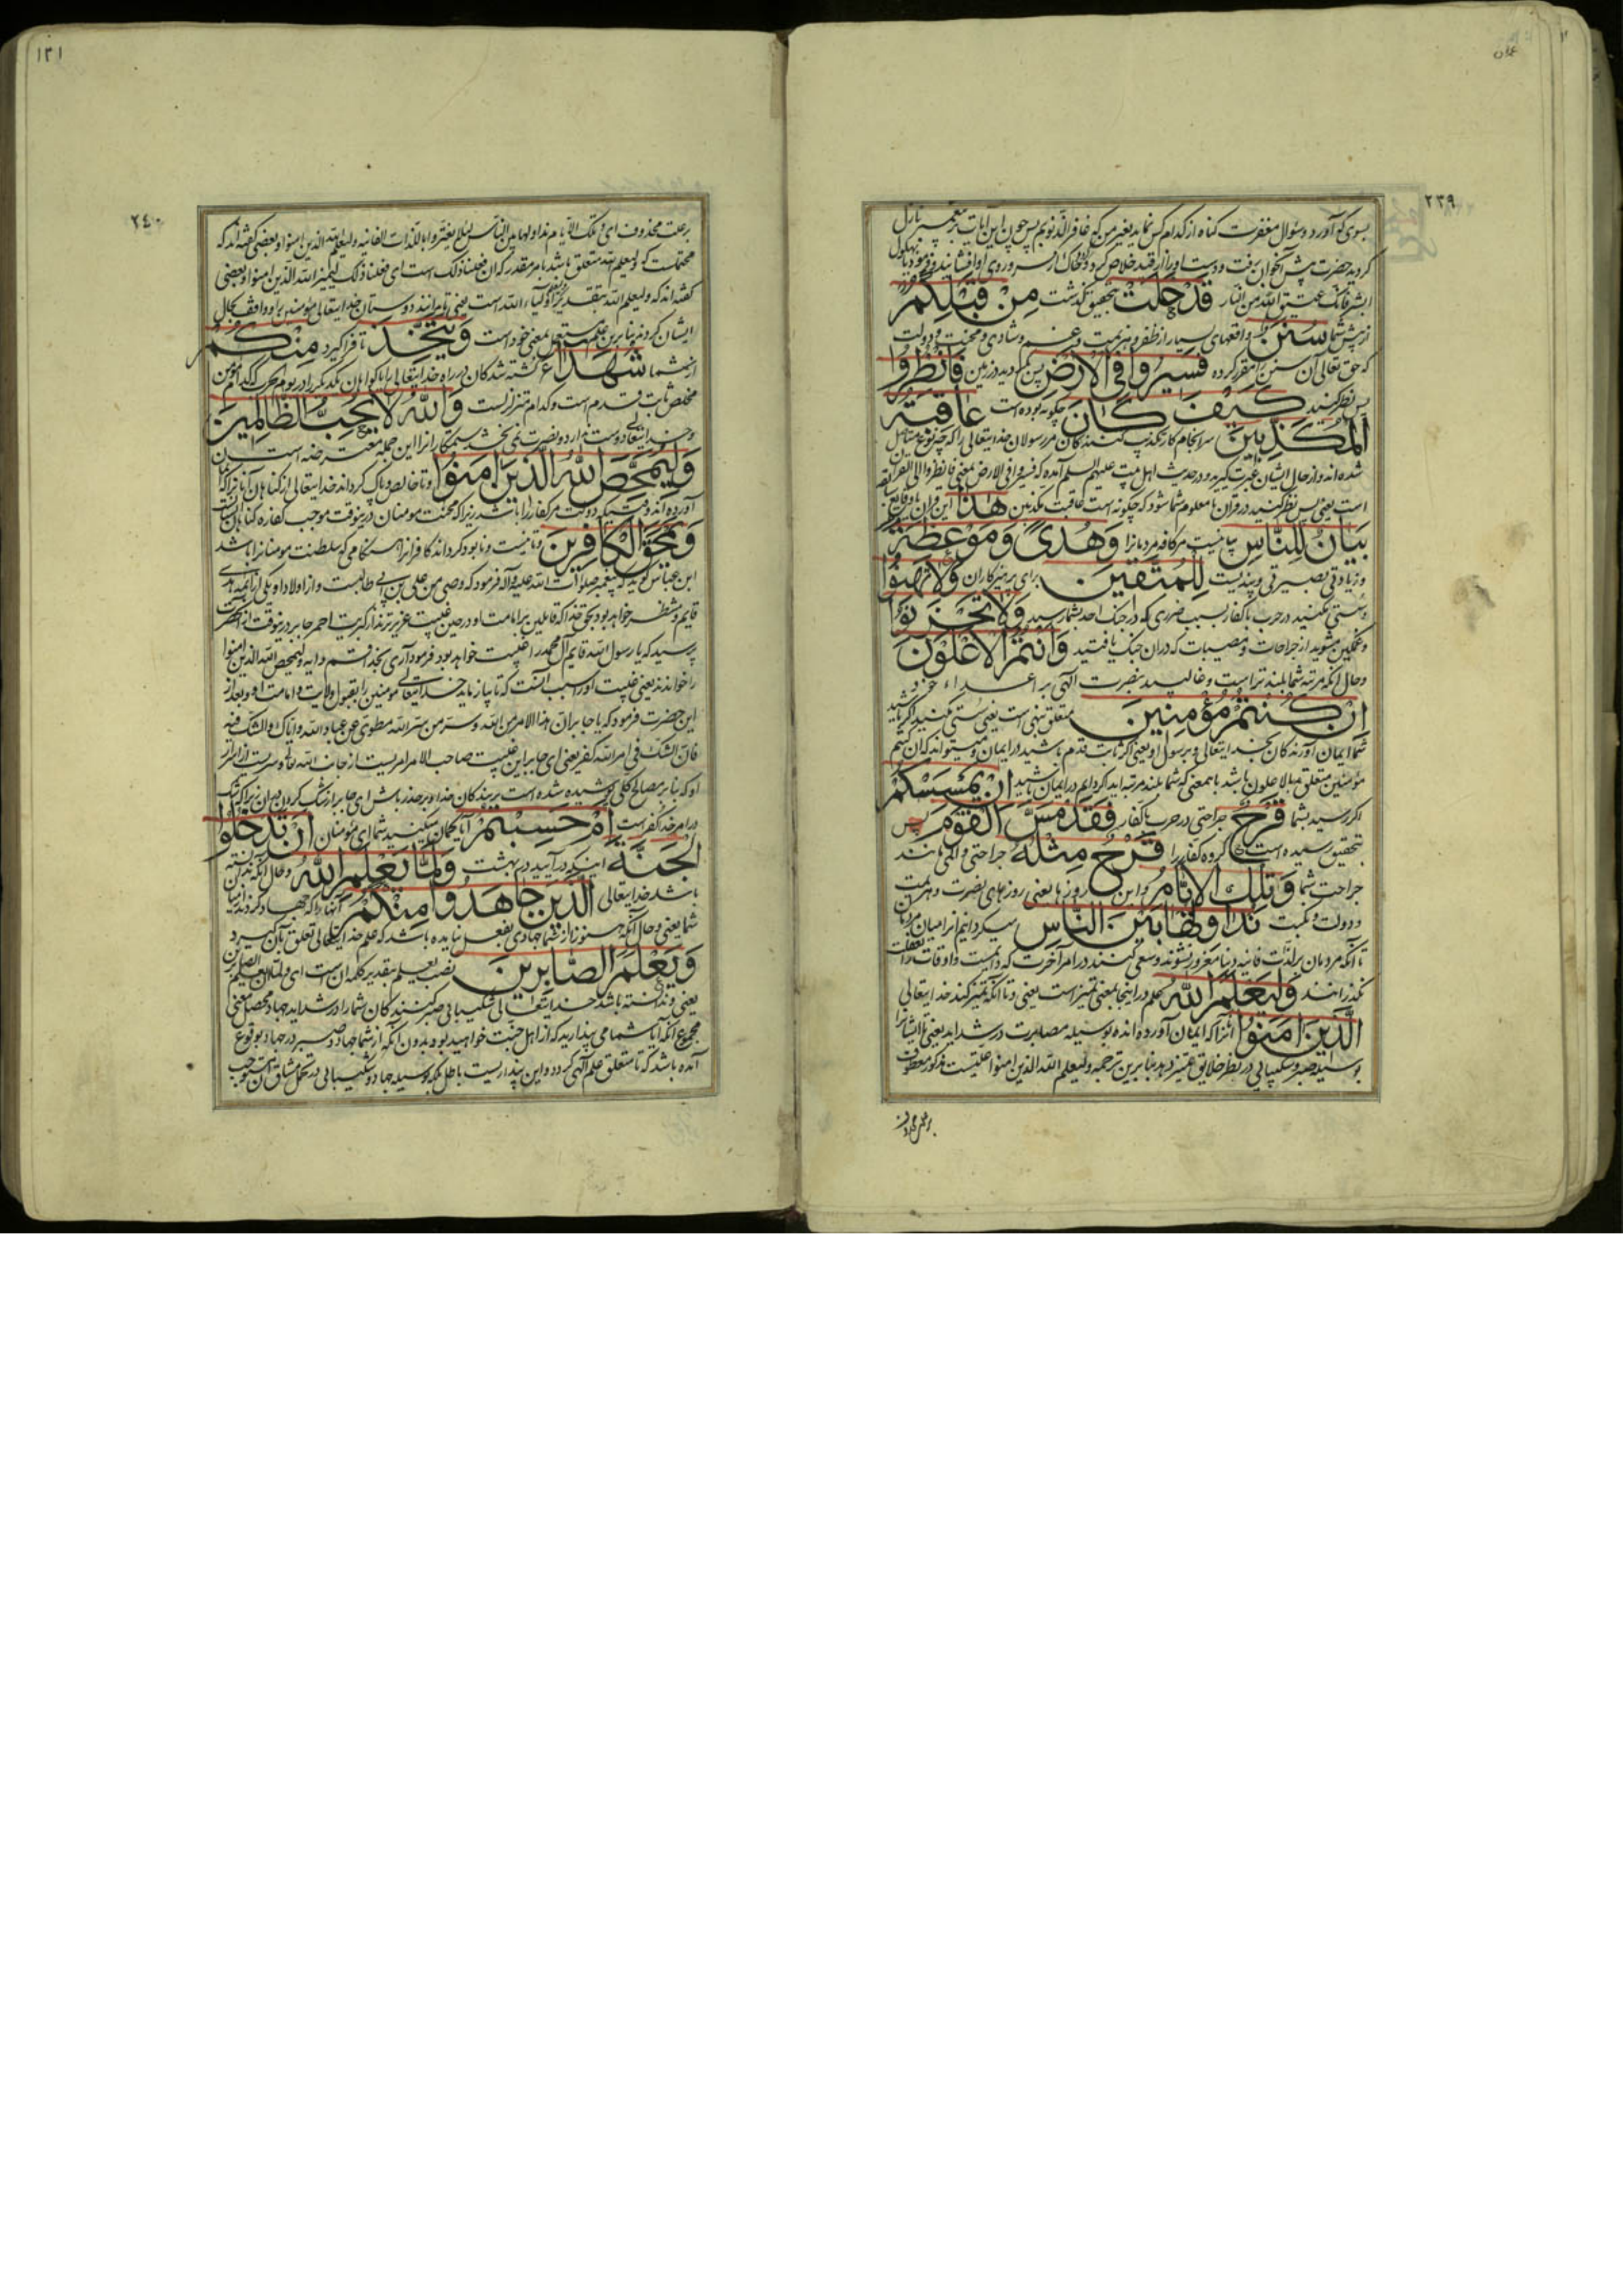 ٢٣٩
بسوی کو آورد و سئوال مغفرت کناه از کدام کس نماید بغیر من که غافر الذنوبم پس چون این آیات بر پیغمبر نازل
کردید حضرت پیش آنجوان برفت و دست او را از قید خلاص کرد و خاک از سر و روی او افشانید و فرمود یا بهلول
ابشر فانک عتیق الله من النار قَدْ خَلَتْ بتحقیق گذشت مِنْ قَبْلِكُمْ
از پیش شما سُنَنٌ واقعهای بسیار از ظفر و هزیمت و غم و شادی و محنت و دولت
که حق تعالی آن سنن را مقرر کرده فَسِيرُوا فِي الْأَرْضِ پس بگردید در زمین فَانْظُرُوا
پس نظر کنید كَيْفَ كَانَ چکونه بوده است عَاقِبَةُ
الْمُكَذِّبِينَ سرانجام کار تکذیب کنندکان مر رسولان خدایتعالی را که چه نوع مستاصل
شده اند و از حال ایشان عبرت گیرید و در حدیث اهل بیت علیهم السلم آمده که فسیروا فی الارض بمعنی فانظروا الی القرآن
است یعنی پس نظر کنید در قرآن تا معلوم شما شود که چکونه است عاقبت مکذبین هٰذَا این قرآن
بَيَانٌ لِلنَّاسِ بیانیست مر کافه مردمانرا وَهُدًى وَمَوْعِظَةٌ
و زیادتی بصیرتی و پندیست لِلْمُتَّقِينَ برای پرهیزکاران وَلَا تَهِنُوا
و سستی مکنید در حرب با کفار بسبب ضرری که در جنک احد بشما رسید وَلَا تَحْزَنُوا
و غمکین مشوید از جراحات و مصیبات که در آن جنک یافتید وَأَنْتُمُ الْأَعْلَوْنَ
و حال آنکه مرتبه شما بلندتر است و غالبید بنصرت الهی بر اعداء خود
إِنْ كُنْتُمْ مُؤْمِنِينَ متعلق بنهی است یعنی سستی مکنید اگر باشید
شما ایمان آورندکان بخدایتعالی و برسول او یعنی اگر ثابت قدم باشید در ایمان و میتواند که ان کنتم
مؤمنین متعلق بالاعلون باشد بامعنی که شما بلند مرتبه اید اگر دایم در ایمان باشید إِنْ يَمْسَسْكُمْ
اگر رسید بشما قَرْحٌ جراحتی در حرب با کفار فَقَدْ مَسَّ الْقَوْمَ پس
بتحقیق رسیده است گروه کفار را قَرْحٌ مِثْلُهُ جراحتی و المی مانند
جراحت شما وَتِلْكَ الْأَيَّامُ و این روزها یعنی روزهای نصرت و هزیمت
و دولت و نکبت نُدَاوِلُهَا بَيْنَ النَّاسِ میکردانیم انرا میان مردمان
تا آنکه مردمان بر لذات فانیه دنیا مغرور نشوند و سعی کنند در امر آخرت که دایمست و اوقات را بغفلت
نکذرانند وَلِيَعْلَمَ اللَّهُ علم در اینجا بمعنی تمیز است یعنی و تا آنکه تمیز کند خدایتعالی
الَّذِينَ آمَنُوا آنرا که ایمان آورده اند بوسیله مصابرت در شداید یعنی تا ایشانرا
بوسیله صبر و شکیبایی در نظر خلایق تمیز دهد بنابرین ترجمه ولیعلم الله الذین امنوا علتیست مذکور معطوف
بر علت محذوف
١٢١
٢٤٠
بر علت محذوف ای و تلک الایام نداولها بین الناس لئلا یغتروا باللذات الفانیه ولیعلم الله الذین امنوا و بعضی گفته اند که
محتملست که ولیعلم الله متعلق باشد بامر مقدر که ان فعلنا ذلک است ای فعلنا ذلک لیمیز الله الذین امنوا و بعضی
گفته اند که ولیعلم الله بتقدیر اولیاء الله است یعنی تا بدانند دوستان خدایتعالی مؤمنین را و واقف بحال
ایشان کردند بنابرین علم مستعمل بمعنی خود است وَيَتَّخِذَ تا فراگیرد مِنْكُمْ
از شما شُهَدَاءَ کشته شدکان در راه خدایتعالی را یا کواهان یکدیگر را در یوم الحرب که کدام مؤمن
مخلص ثابت قدم است و کدام متزلزلست وَاللَّهُ لَا يُحِبُّ الظَّالِمِينَ
و خدایتعالی دوست ندارد و نصرت نمی بخشد ستمکارانرا این جمله معترضه است
وَلِيُمَحِّصَ اللَّهُ الَّذِينَ آمَنُوا و تا خالص و پاک کرداند خدایتعالی از کناهان آنانرا که ایمان
آورده اند وقتیکه دولت مر کفار را باشد زیرا که محنت مومنان درینوقت موجب کفاره کناهان ایشانست
وَيَمْحَقَ الْكَافِرِينَ و تا نیست و نابود کرداند کافرانرا هنکامی که سلطنت مومنانرا باشد
ابن عباس کوید که پیغمبر صلوات الله علیه و آله فرمود که وصی من علی بن ابی طالبست و از اولاد او یکی از ائمه هدی
قایم منتظر خواهد بود بحق خدا که قایلین بر امامت او در حین غیبت عزیزترند از کبریت احمر جابر درینوقت از آنحضرت
پرسید که یا رسول الله قایم آل محمد را غیبت خواهد بود فرمود آری بخدا قسم و آیه ولیمحص الله الذین امنوا
را خواندند یعنی غیبت او را سبب آنست که تا بیازماید خدایتعالی مومنین را بقبول ولایت و امامت او و بعد از
این حضرت فرمود که یا جابر ان هذا الامر من الله و سر من سر الله مطوی عن عباد الله و ایاک و الشک فیه
فان الشک فی امر الله کفر یعنی ای جابر این غیبت صاحب الامر امریست از جانب الله تعالی و سریست از اسرار
او که بنابر مصالح کلی پوشیده شده است بر بندکان خدا و بر حذر باش ای جابر از شک کردن در آن زیرا که شک
در امر خدا کفر است أَمْ حَسِبْتُمْ آیا کمان میکنید شما ای مؤمنان أَنْ تَدْخُلُوا
الْجَنَّةَ اینکه درآیید در بهشت وَلَمَّا يَعْلَمِ اللَّهُ و حال آنکه ندانسته
باشد خدایتعالی الَّذِينَ جَاهَدُوا مِنْكُمْ آنها را که جهاد کردند از میان
شما یعنی و حال آنکه هنوز از شما جهادی بفعل نیامده باشد که علم خدایتعالی تعلق بآن گیرد
وَيَعْلَمَ الصَّابِرِينَ نصب یعلم بتقدیر کلمه ان است ای و لما ان یعلم الصابرین
یعنی و ندانسته باشد خدایتعالی شکیبایی صبر کنندکان شما را در شداید جهاد محصل معنی
مجموع آنکه آیا شما می پندارید که از اهل جنت خواهید بود بدون آنکه از شما جهاد و صبر در جهاد بوقوع
آمده باشد که تا متعلق علم آلهی کردد و این پنداریست باطل بلکه بوسیله جهاد و شکیبایی در تحمل مشاق آن مستوجب